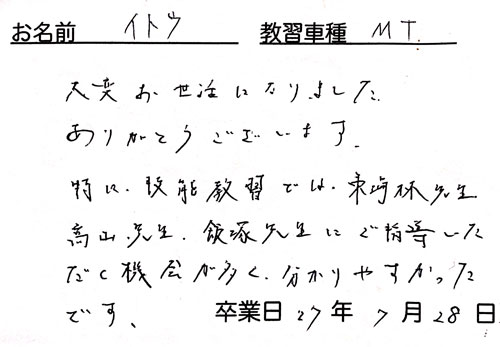 お名前 イトウ 教習車種 MT.
大変お世話になりました
ありがとうございます.
特に、技能教習では、東崎林先生
高山先生、飯塚先生にご指導いた
だく機会が多く、分かりやすかった
です、 卒業日 27年 7月28日